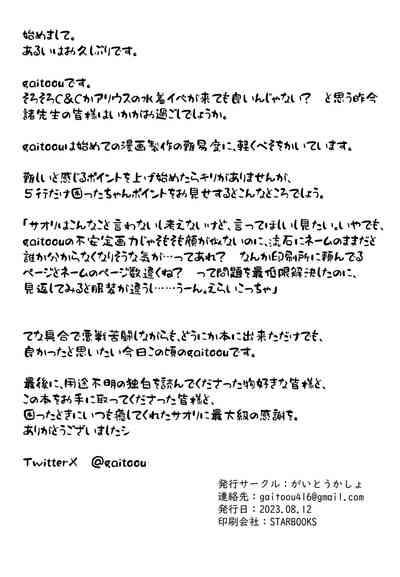 始めまして。
あるいはお久しぶりです。
gaitoouです。
そろそろC&Cかアリウスの水着イベが来ても良いんじゃない？　と思う昨今
諸先生の皆様はいかがお過ごしでしょうか。
gaitoouは始めての漫画製作の難易度に、軽くべそをかいています。
難しいと感じるポイントを上げ始めたらキリがありませんが、
5行だけ困ったちゃんポイントをお見せするとこんなところでしょう。
「サオリはこんなこと言わないし考えないけど、言ってほしいし見たい。いやでも、
gaitoouの不安定画力じゃそもそも顔が似ないのに、流石にネームのままだと
誰か分からなくなりそうな気が…ってあれ？　なんか印刷所に頼んでる
ページとネームのページ数違くね？　って問題を最低限解決したのに、
見返してみると服装が違うし……うーん。えらいこっちゃ」
てな具合で悪戦苦闘しながらも、どうにか本に出来ただけでも、
良かったと思いたい今日この頃のgaitoouです。
最後に、用途不明の独白を読んでくださった物好きな皆様と、
この本をお手に取ってくださった皆様と、
困ったときにいつも癒してくれたサオリに最大級の感謝を。
ありがとうございましたシ
TwitterX　@gaitoou
発行サークル：がいとうかしょ
連絡先：gaitoou416@gmail.com
発行日：2023.08.12
印刷会社：STARBOOKS